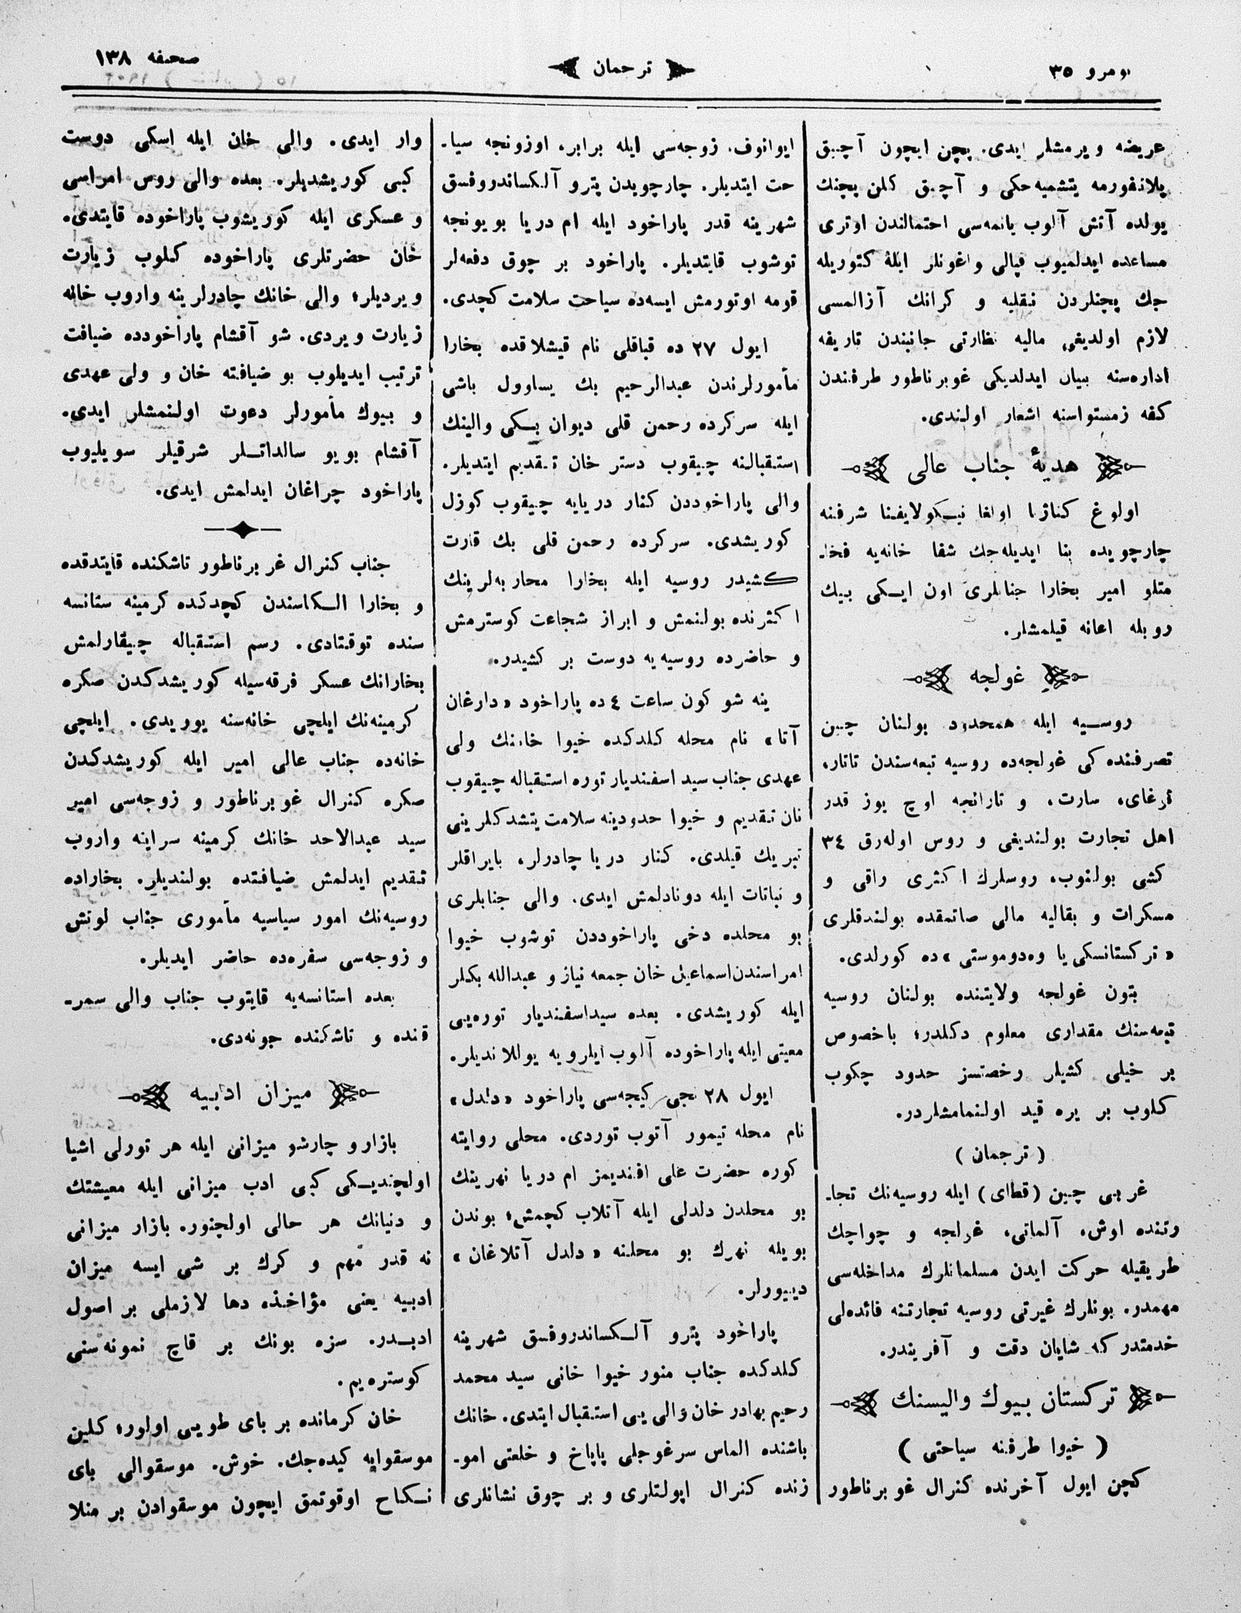 نومرو ٣٥
ترجمان
صحیفه ١٣٨
عریضه ویرمشلر ایدی. پچن ایچون آچیق
پلاتفورمه یتشمیه‌جکی و آچیق کلن پچنك
یولده آتش آلوب یانمه‌سی احتمالندن اوتری
مساعده ایدلمیوب قپالی واغونلر ایله کتوریله
جك پچنلردن نقلیه و کرانك آزالمسی
لازم اولدیغی مالیه نظارتی جانبندن تاریفه
اداره‌سنه بیان ایدلدیکی غوبرناطور طرفندن
کفه زمستواسنه اشعار اولندی.
هدیهٔ جناب عالی
اولوغ کناژنا اولغا نیکولایفنا شرفنه
چارچویده بنا ایدیله‌جك شفا خانه‌یه فخا-
متلو امیر بخارا جنابلری اون ایکی بیك
روبله اعانه قیلمشلر.
غولجه
روسیه ایله همحدود بولنان چین
تصرفنده کی غولجه‌ده روسیه تبعه‌سندن تاتار،
نوغای، سارت، و تارانچه اوچ یوز قدر
اهل تجارت بولندیغی و روس اوله‌رق ٣٤
کشی بولنوب، روسلرك اکثری راقی و
مسکرات و بقالیه مالی صاتمقده بولندقلری
« ترکستانسکی یا وه‌دوموستی »ده کورلدی.
بتون غولجه ولایتنده بولنان روسیه
تبعه‌سنك مقداری معلوم دکلدر؛ باخصوص
بر خیلی کشیلر رخصتسز حدود چکوب
کلوب بر یره قید اولنمامشلردر.
( ترجمان )
غربی چین (قطای) ایله روسیه‌نك تجا-
رتنده اوش، آلماتی، غولجه و چواچك
طریقیله حرکت ایدن مسلمانلرك مداخله‌سی
مهمدر. بونلرك غیرتی روسیه تجارتنه فائده‌لی
خدمتدر که شایان دقت و آفریندر.
ترکستان بیوك والیسنك
( خیوا طرفنه سیاحتی )
کچن ایول آخرنده کنرال غوبرناطور
ایوانوف، زوجه‌سی ایله برابر، اوزونجه سیا-
حت ایتدیلر. چارچویدن پترو آلکساندروفسق
شهرینه قدر پاراخود ایله ام دریا بویونجه
توشوب قایتدیلر. پاراخود بر چوق دفعه‌لر
قومه اوتورمش ایسه‌ده سیاحت سلامت کچدی.
ایول ٢٧ ده قباقلی نام قیشلاقده بخارا
مأمورلرندن عبدالرحیم بك یساوول باشی
ایله سرکرده رحمن قلی دیوان بکی والینك
استقبالنه چیقوب دستر خان تقدیم ایتدیلر.
والی پاراخوددن کنار دریایه چیقوب کوزل
کوریشدی. سرکرده رحمن قلی بك قارت
کشیدر روسیه ایله بخارا محاربه‌لرینك
اکثرنده بولنمش و ابراز شجاعت کوسترمش
و حاضرده روسیه‌یه دوست بر کشیدر.
ینه شو کون ساعت ٤ ده پاراخود « دارغان
آتا » نام محله کلدکده خیوا خانك ولی
عهدی جناب سید اسفندیار توره استقباله چیقوب
نان تقدیم و خیوا حدودینه سلامت یتشدکلرینی
تبریك قیلدی. کنار دریا چادرلر، بایراقلر
و نباتات ایله دونادلمش ایدی. والی جنابلری
بو محلده دخی پاراخوددن توشوب خیوا
امراسندن اسماعیل خان جمعه نیاز و عبدالله بکلر
ایله کوریشدی. بعده سید اسفندیار توره‌یی
معیتی ایله پاراخوده آلوب ایلرویه یوللاندیلر.
ایول ٢٨ نجی کیجه‌سی پاراخود « دلدل »
نام محله تیمور آتوب توردی. محلی روایته
کوره حضرت علی افندیمز ام دریا نهرینك
بو محلدن دلدلی ایله آتلاب کچمش؛ بوندن
بویله نهرك بو محلنه « دلدل آتلاغان »
دیییورلر.
پاراخود پترو آلکساندروفسق شهرینه
کلدکده جناب منور خیوا خانی سید محمد
رحیم بهادر خان والی یی استقبال ایتدی. خانك
باشنده الماس سرغوجلی پاپاخ و خلعتی امو-
زنده کنرال اپولتلری و بر چوق نشانلری
وار ایدی. والی خان ایله اسکی دوست
کبی کوریشدیلر. بعده والی روس امراسی
و عسکری ایله کوریشوب پاراخوده قایتدی.
خان حضرتلری پاراخوده کلوب زیارت
ویردیلر؛ والی خانك چادرلرینه واروب خانه
زیارت ویردی. شو آقشام پاراخودده ضیافت
ترتیب ایدیلوب بو ضیافته خان و ولی عهدی
و بیوك مأمورلر دعوت اولنمشلر ایدی.
آقشام بویو سالداتلر شرقیلر سویلیوب
پاراخود چراغان ایدلمش ایدی.
جناب کنرال غوبرناطور تاشکنده قایتدقده
و بخارا الکاسندن کچدکده کرمینه ستانسه
سنده توقتادی. رسم استقباله چیقارلمش
بخارانك عسکر فرقه‌سیله کوریشدکدن صکره
کرمینه‌نك ایلچی خانه‌سنه یوریدی. ایلچی
خانه‌ده جناب عالی امیر ایله کوریشدکدن
صکره کنرال غوبرناطور و زوجه‌سی امیر
سید عبدالاحد خانك کرمینه سراینه واروب
تقدیم ایدلمش ضیافتده بولندیلر. بخاراده
روسیه‌نك امور سیاسیه مأموری جناب لوتش
و زوجه‌سی سفره‌ده حاضر ایدیلر.
بعده استانسه‌یه قایتوب جناب والی سمر-
قنده و تاشکنده جونه‌دی.
میزان ادبیه
بازار و چارشو میزانی ایله هر تورلی اشیا
اولچندیکی کبی ادب میزانی ایله معیشتك
و دنیانك هر حالی اولچنور. بازار میزانی
نه قدر مهم و کرك بر شی ایسه میزان
ادبیه یعنی مؤاخذه دها لازملی بر اصول
ادبدر. سزه بونك بر قاچ نمونه‌سنی
کوستره‌یم.
خان کرمانده بر بای طویی اولور؛ کلین
موسقوایه کیده‌جك. خوش. موسقوالی بای
نکاح اوقوتمق ایچون موسقوادن بر منلا